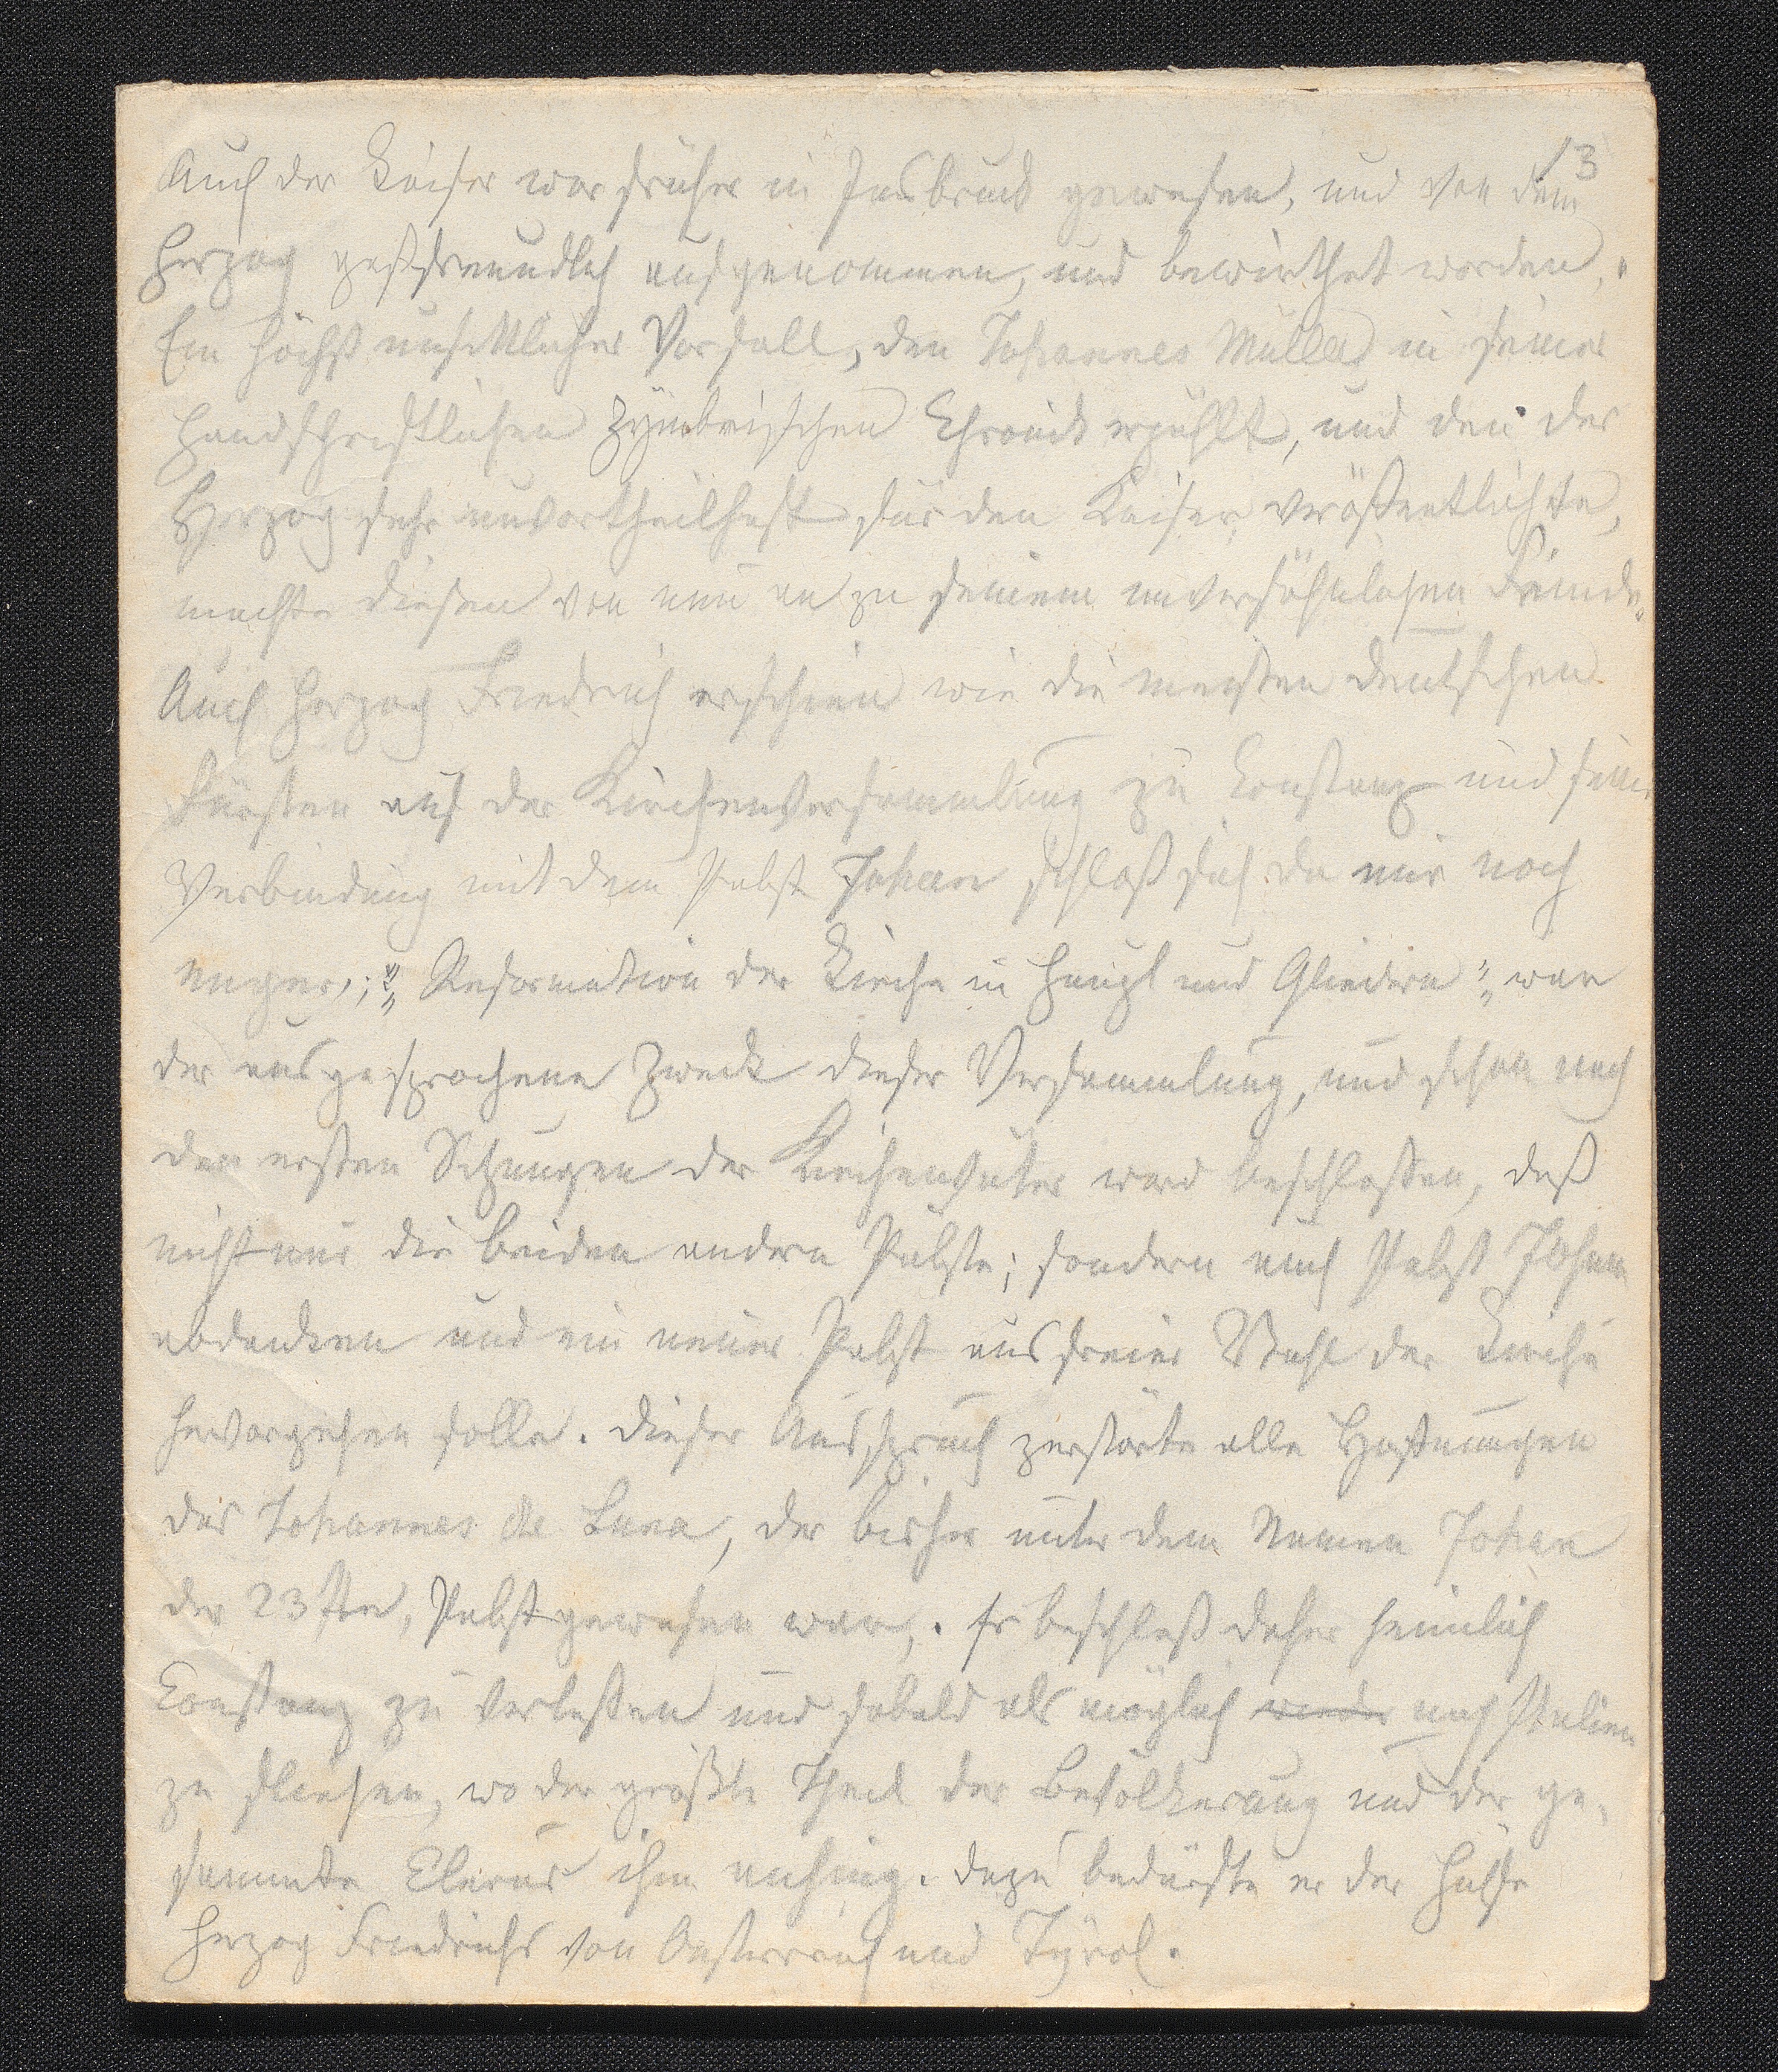 13
Auch der Kaiser war früher in Insbruck gewesen, und von dem
Herzog gastfreundlich aufgenommen, und bewirthet worden.
Ein höchst unsittlicher Vorfall, den Johannes Müller in seiner
handschriftlichen zymbrischen Chronick erzählt, und den der
Herzog sehr unvortheilhaft für den Kaiser veröffentlichte,
machte diesen von nun an zu seinem unversöhnlichen Feinde.
Auch Herzog Friedrich erschien wie die meisten deutschen
Fürsten auf der Kirchenversammlung zu Constanz und seine
Verbindung mit dem Pabst Johan schloß sich da nur noch
enger; „Reformation der Kirche in Haupt und Gliedern" war
der ausgesprochene Zweck dieser Versammlung, und schon nach
den ersten Sitzungen der Kirchenväter ward beschlossen, daß
nicht nur die beiden andern Päbste; sondern auch Pabst Johan
abdanken und ein neuer Pabst aus freier Wahl der Kirche
hervorgehen solle. Dieser Ausspruch zerstörte alle Hoffnungen
des Johannes de Luna, der bisher unter dem Namen Johan
der 23ste, Pabst gewesen war. Er beschloß daher heimlich
Constanz zu verlassen und sobald als möglich wieder nach Italien
zu fliehen, wo der größte Theil der Bevölkerung und der ge-
sammte Clerus ihm anhing. Dazu bedurfte er der Hülfe
Herzog Friedrichs von Oesterreich und Tÿrol.